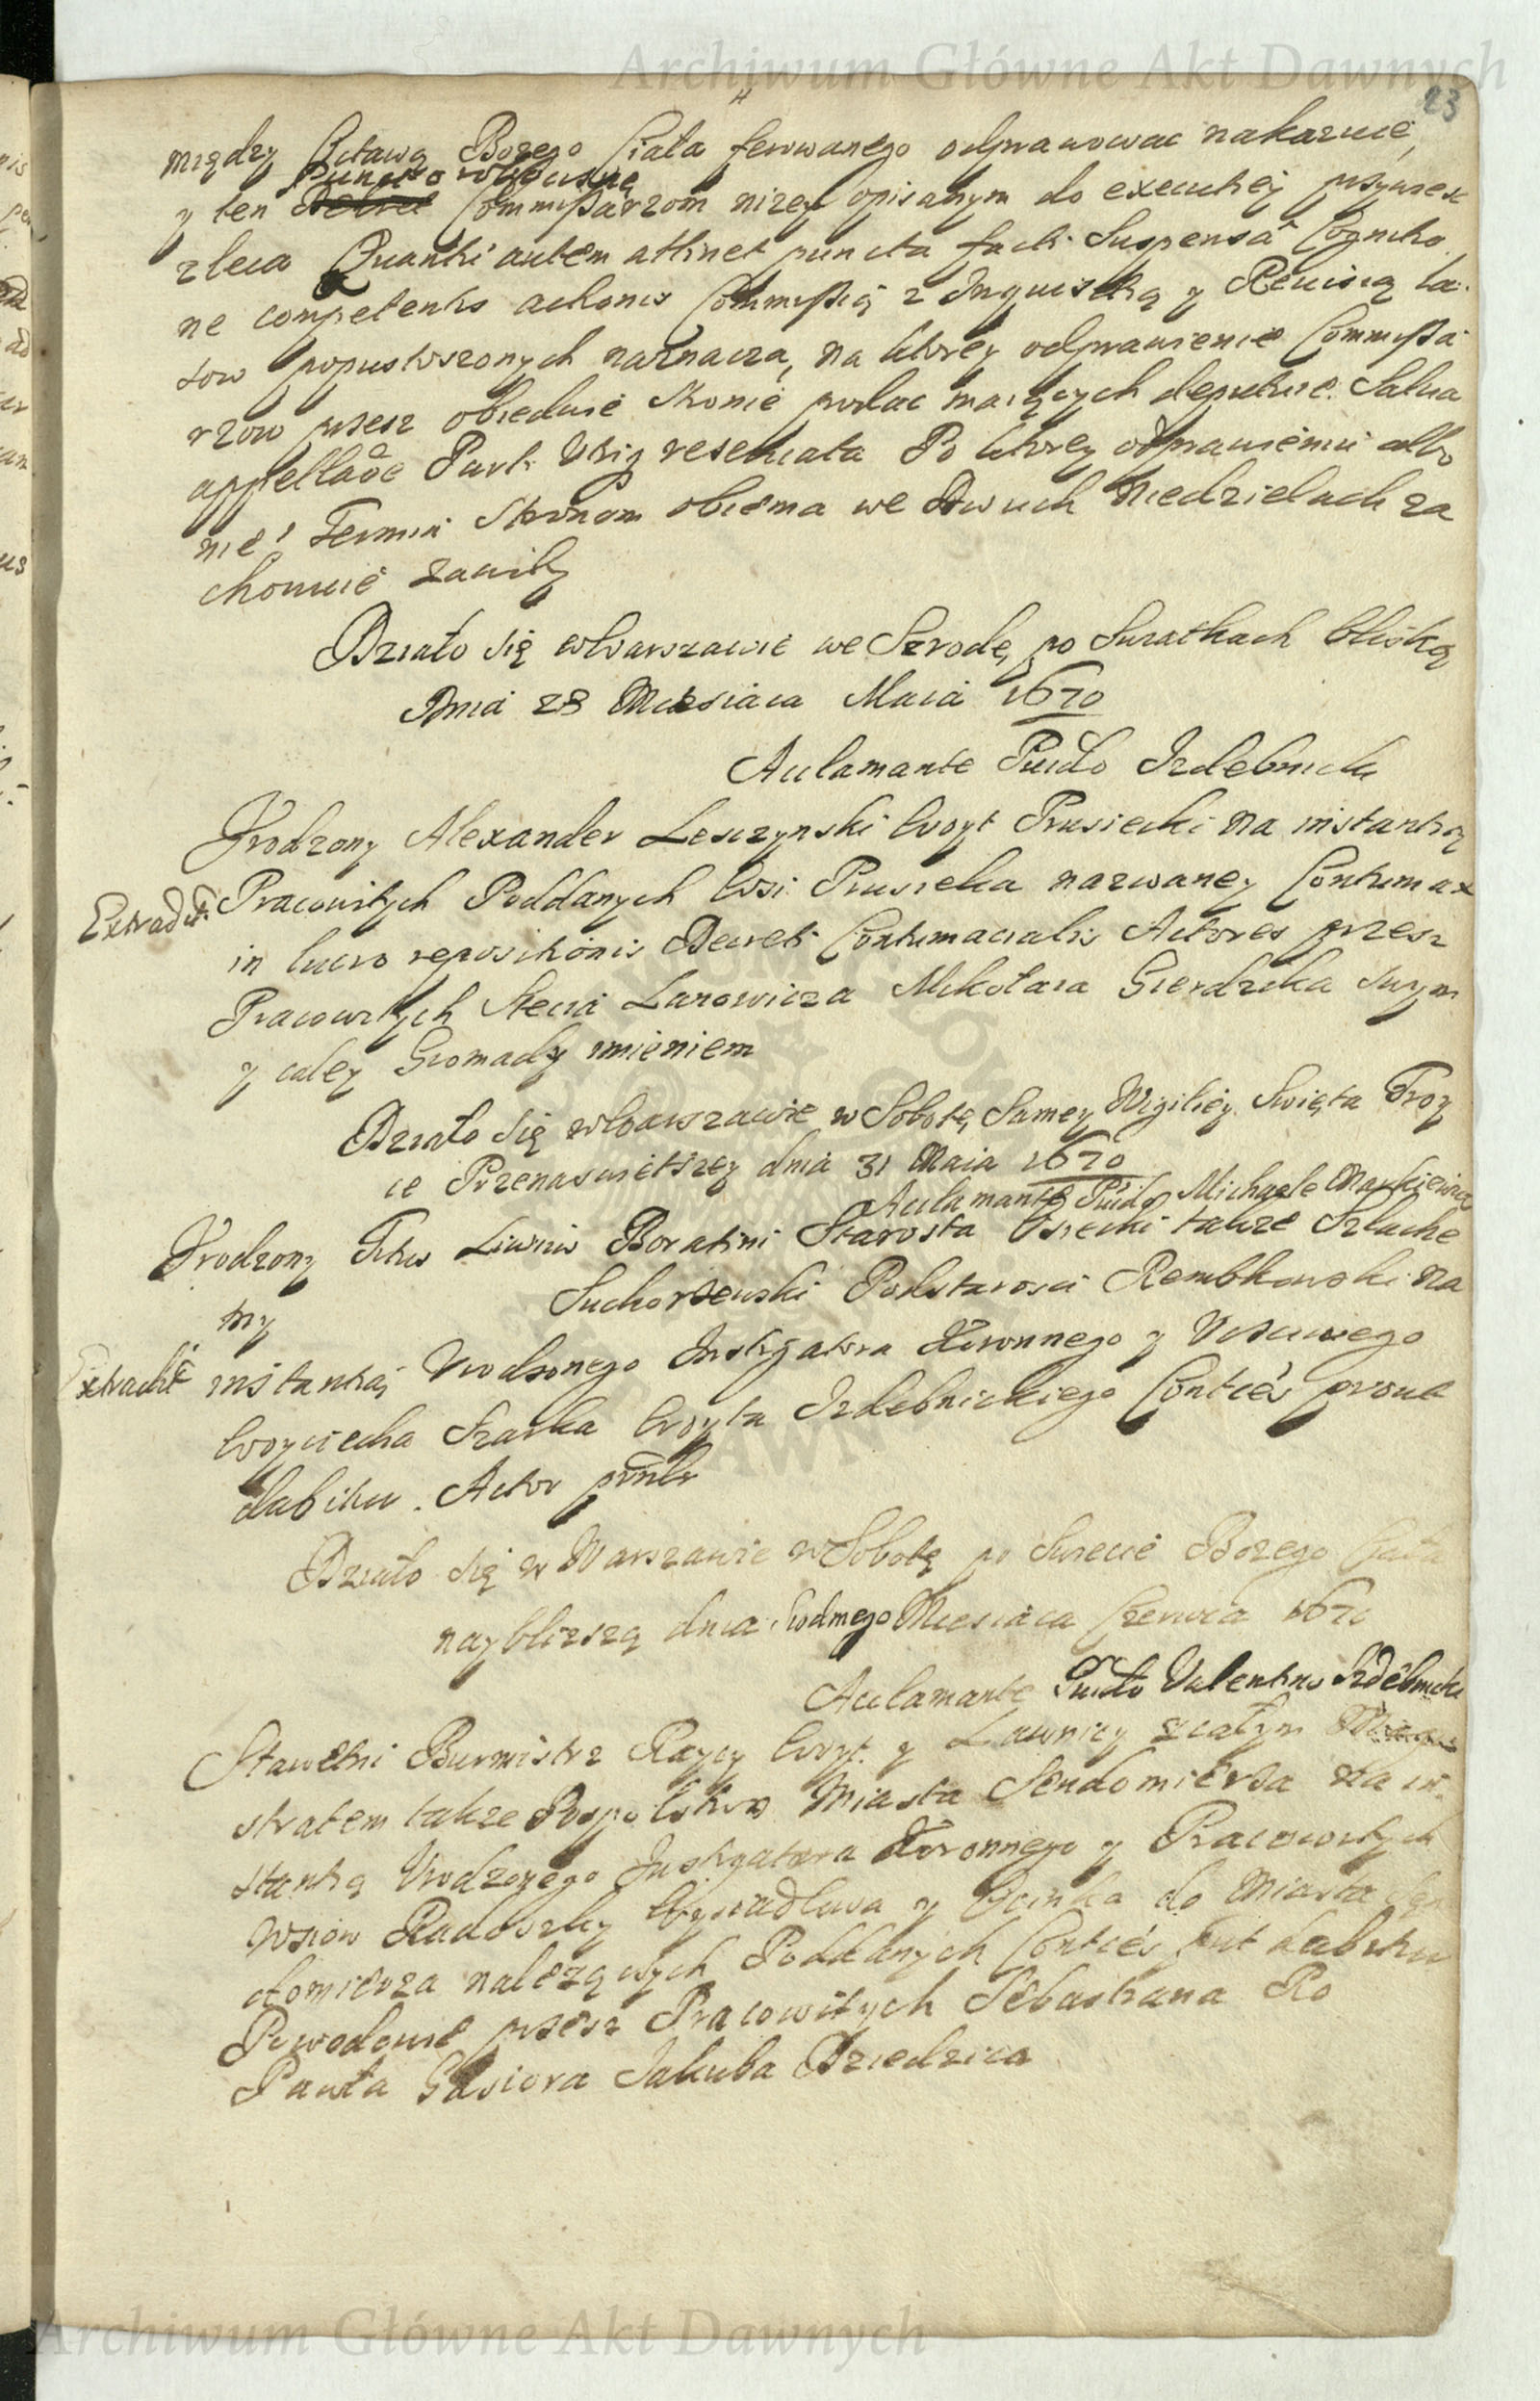 Archiwum Główne Akt Dawnych
23
między Octawą Bozego Ciała ferowanego odprawowac nakazuie,
Puncto
y ten Commissarzom nizey opisanym do executiey przywiesc
zleca Quanti autem attinet puncta facti Suspensa Cognitio
ne competentis actionis Commissią z Inquisitią y Rewisią la
sow popustoszonych naznacza, na ktorey odprawienie Commissa
rzow przesz obiedwie Stronie podac maiących deputuie. Salua
appellaõe Parti Utriq reseruata Po ktorey odprawieniu albo
nie, Termin Stronom obiema we dwuch Niedzielach za
chowuie zawity
Działo się w Warszawie we Szrodę, po Swiatkach bliską
Dnia 28 Miesiąca Maia 1670
Acclamante Pwido Izdebnicki
Vrodzony Alexander Lesczynski Woyt Prusiecki na instantią
Extradit
Pracowitych Poddanych Wsi Prusieka nazwaney Contumax
in lucro repositionis Decreti Contumacialis Actores przesz
Pracowitych Stecia Lanowicza Mikołaia Gierdzika swym
y całey Gromady imieniem
Działo się w Warszawie w Sobotę, Samey Wigiliey Swięta Troy
ce Przenaswiętszey dnia 31 Maia 1670
Acclamante Pwido Michaele Mankiewicz
Vrodzony Titus Liwius Boratini Starosta Osiecki takze Szlache
tny Suchorzewski Podstarosci Rembkowski na
Extradit
instantią Vrodzonego Instigatora Koronnego y Vczciwego
Woyciecha Szarka Woyta Izdebnickiego Conttes prout
dabitur. Actor pñlr
Działo się w Warszawie w Sobotę po Swiecie Bozego Ciała
nayblizszą dnia Siodmego Miesiąca Czerwca 1670
Acclamante Pwido Valentino Izdebnicki
Sławetni Burmistrz Raycy Woyt y Ławnicy z całym Magi
stratem takze Pospolstwo Miasta Sendomierza Na in
stantią Vrodzonego Instigatora Koronnego y Pracowitych
Wsiow Radoszky y do Miasta Sen
domierza nalezących Poddanych Conttes put dabitur
Powodowie przesz Pracowitych Sebastiana Ro
Pawła Gąsiora Jakuba Dziedzica
Archiwum Główne Akt Dawnych